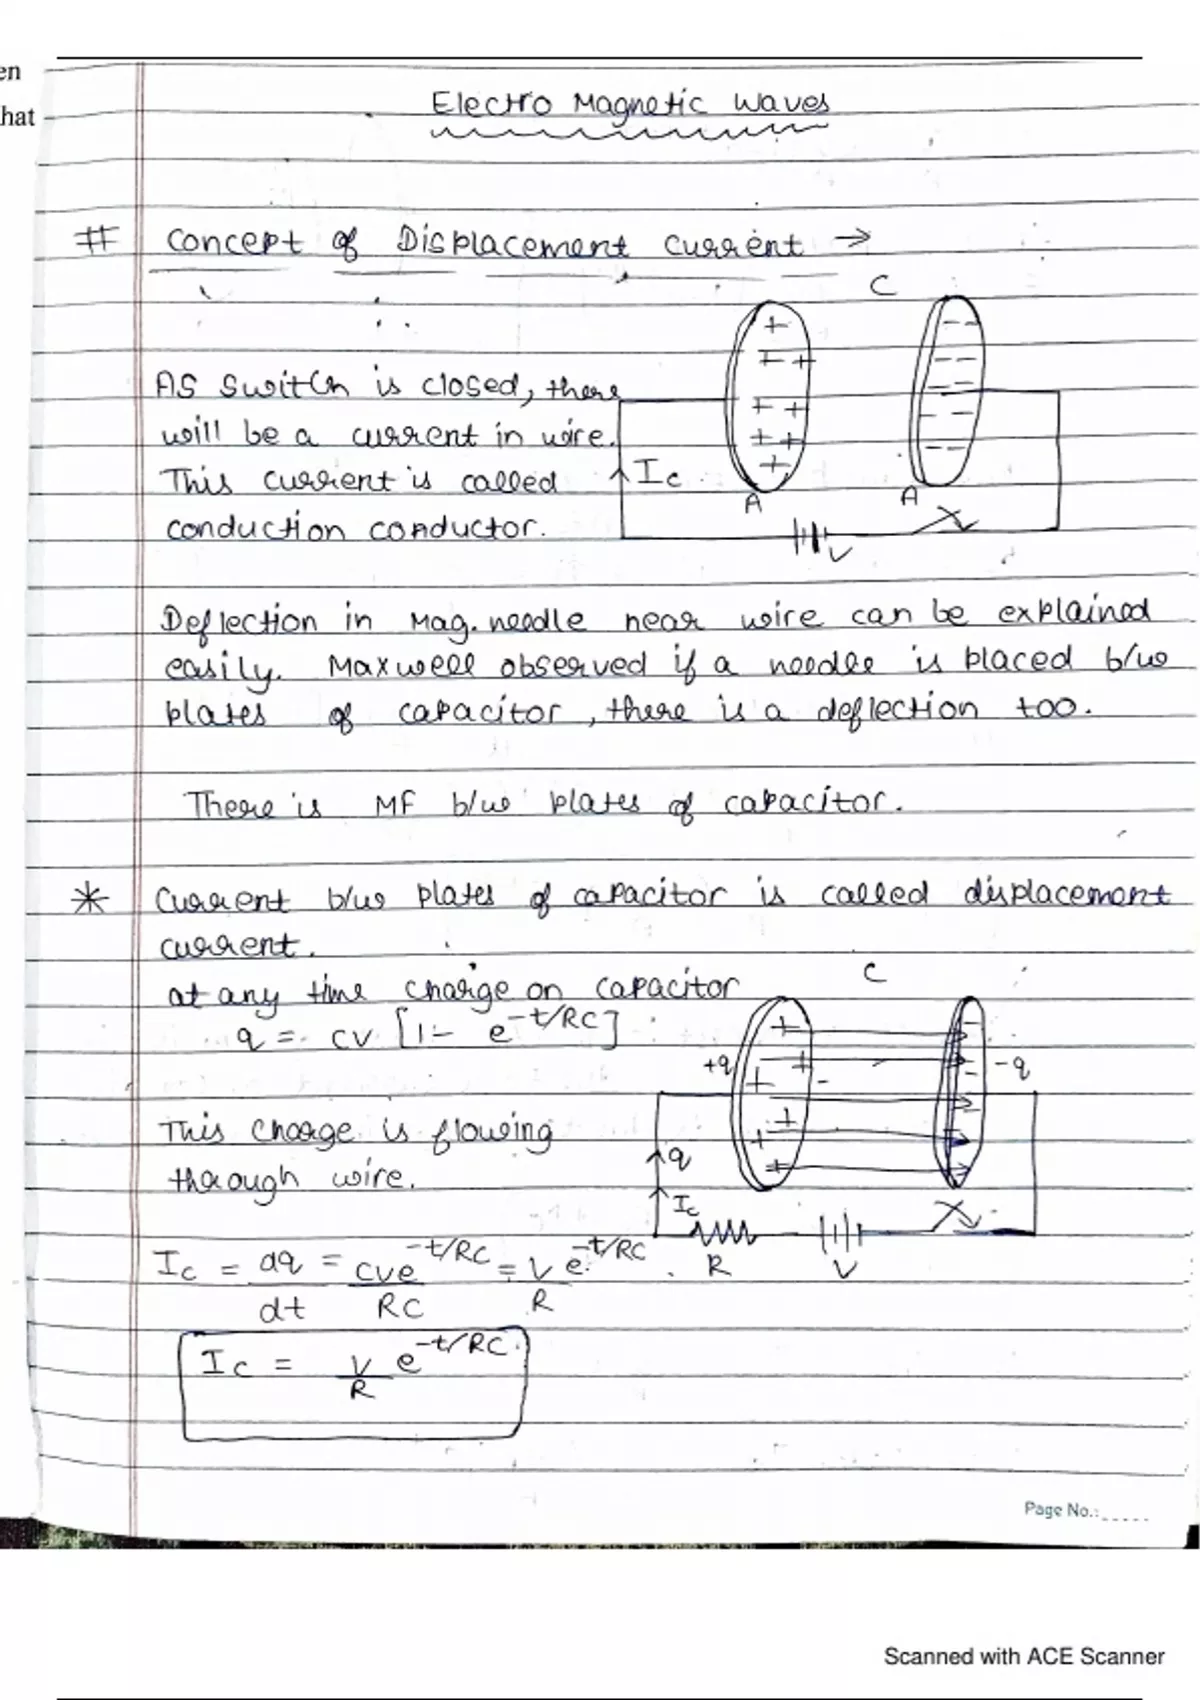 en
hat
Electro Magnetic Waves
# Concept of Displacement Current →
C
+ - -
+ + - -
- -
+ + - -
+ +
+ - -
As Switch is closed, there
will be a current in wire.
This current is called Ic
A A
conduction conductor.
V
Deflection in Mag. needle near wire can be explained
easily. Maxwell observed if a needle is placed b/w
plates of capacitor, there is a deflection too.
There is MF b/w plates of capacitor.
* Current b/w plates of capacitor is called displacement
current.
C
at any time charge on capacitor
q = CV [1 - e^-t/RC]
+q -q
This Charge is flowing
through wire.
q
Ic
R V
Ic = dq/dt = CVe^-t/RC / RC = V/R e^-t/RC
Ic = V/R e^-t/RC
Page No.:_____
Scanned with ACE Scanner